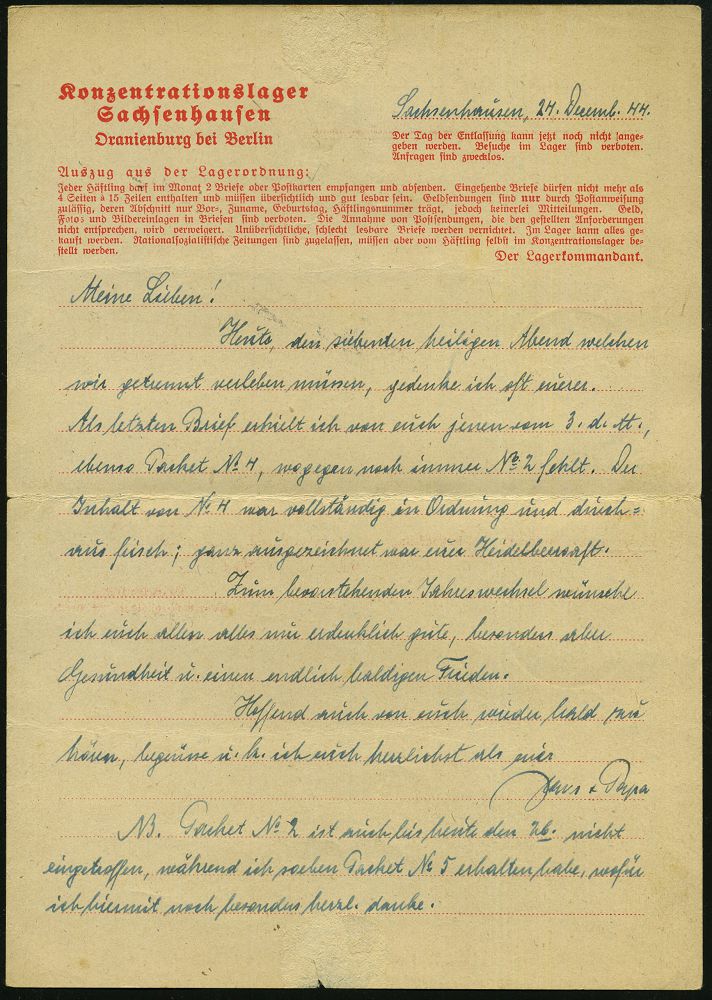 Konzentrationslager
Sachsenhausen
Oranienburg bei Berlin
Sachsenhausen, 24. Dezemb. 44.
Der Tag der Entlassung kann jetzt noch nicht ange-
geben werden. Besuche im Lager sind verboten.
Anfragen sind zwecklos.
Auszug aus der Lagerordnung:
Jeder Häftling darf im Monat 2 Briefe oder Postkarten empfangen und absenden. Eingehende Briefe dürfen nicht mehr als
4 Seiten à 15 Zeilen enthalten und müssen übersichtlich und gut lesbar sein. Geldsendungen sind nur durch Postanweisung
zulässig, deren Abschnitt nur Vor-, Zuname, Geburtstag, Häftlingsnummer trägt, jedoch keinerlei Mitteilungen. Geld,
Fotos und Bildereinlagen in Briefen sind verboten. Die Annahme von Postsendungen, die den gestellten Anforderungen
nicht entsprechen, wird verweigert. Unübersichtliche, schlecht lesbare Briefe werden vernichtet. Im Lager kann alles ge-
kauft werden. Nationalsozialistische Zeitungen sind zugelassen, müssen aber vom Häftling selbst im Konzentrationslager be-
stellt werden.
Der Lagerkommandant.
Meine Lieben!
Heute, den siebenten heiligen Abend welchen
wir getrennt verleben müssen, gedenke ich oft euerer.
Als letzten Brief erhielt ich von euch jenen vom 3. d. M.,
ebenso Packet No. 4, wogegen noch immer No. 2 fehlt. Der
Inhalt von No. 4 war vollständig in Ordnung und durch=
aus frisch; ganz ausgezeichnet war euer Heidelbeersaft.
Zum bevorstehenden Jahreswechsel wünsche
ich euch allen alles nur erdenklich gute, besonders aber
Gesundheit u. einen endlich baldigen Frieden.
Hoffend auch von euch wieder bald zu
hören, begrüsse u. k. ich euch herzlichst als euer
Hans + Papa
NB. Packet No. 2 ist auch bis heute den 26. nicht
eingetroffen, während ich soeben Packet No 5 erhalten habe, wofür
ich hiermit noch besonders herzl. danke.